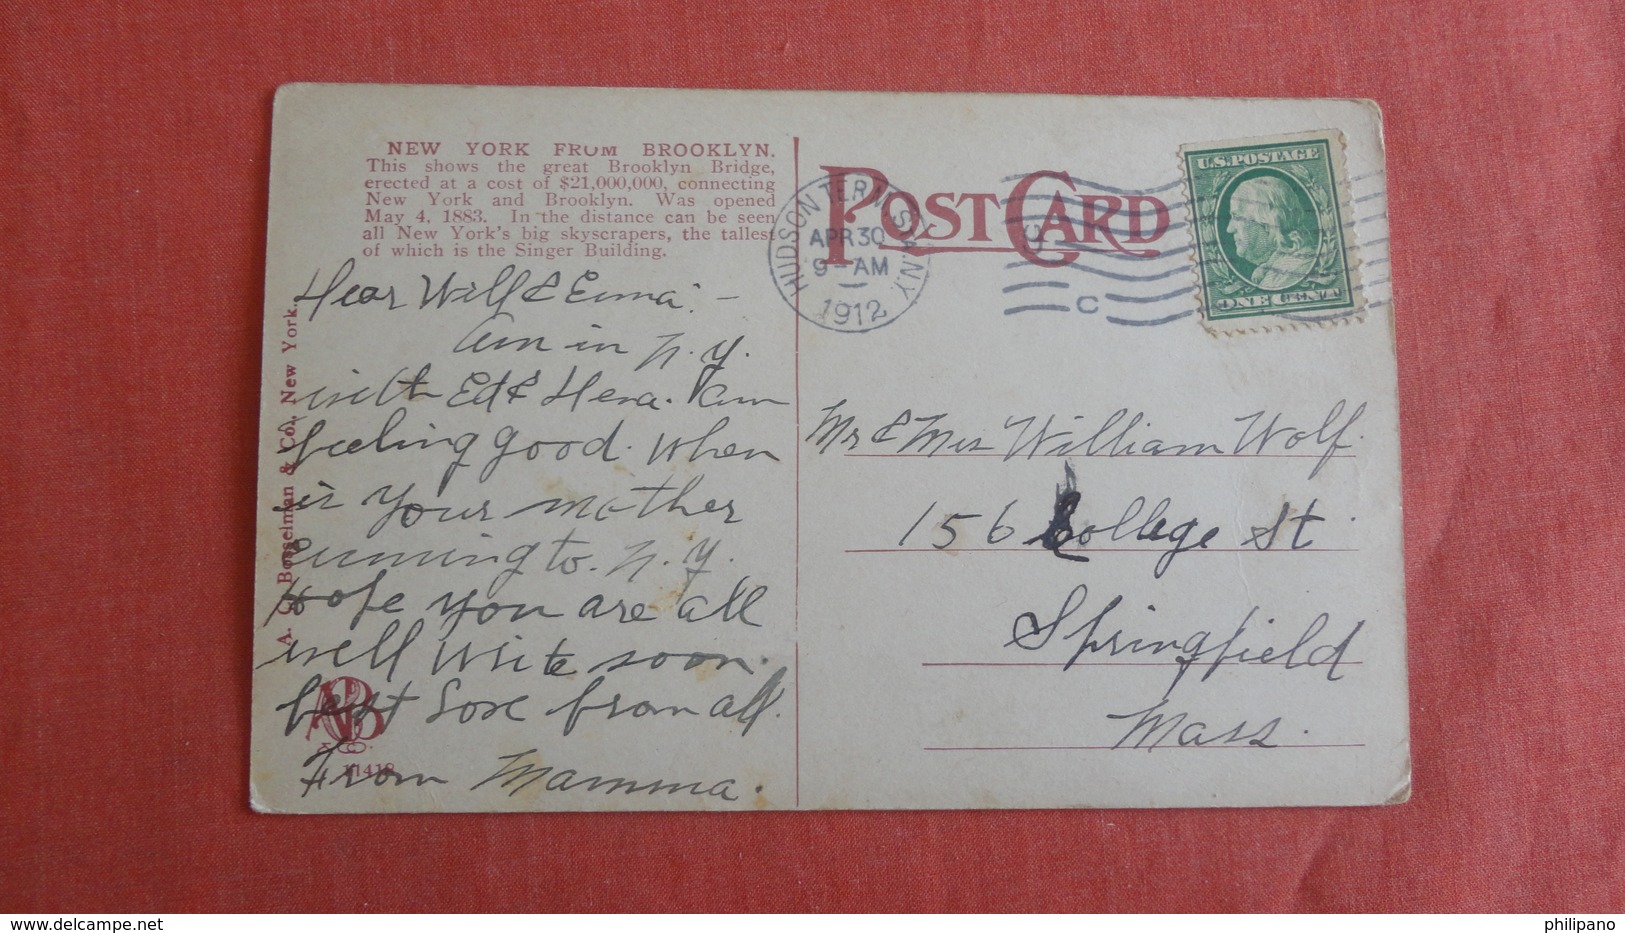 NEW YORK FROM BROOKLYN.
This shows the great Brooklyn Bridge,
erected at a cost of $21,000,000, connecting
New York and Brooklyn. Was opened
May 4, 1883. In the distance can be seen
all New York's big skyscrapers, the tallest
of which is the Singer Building.
Dear Will & Emma: —
Am in N.Y.
with Ed & Hena. Am
feeling good. When
is your mother
comming to. N.Y.
hope you are all
well write soon.
best Love from all.
From Mamma.
A. C. Bosselman & Co., New York.
11418
POST CARD
HUDSON TERM. STA. N.Y.
APR 30
9-AM
1912
C
U.S. POSTAGE
ONE CENT
Mr & Mrs William Wolf.
156 College St.
Springfield
Mass.
www.delcampe.net
philipano